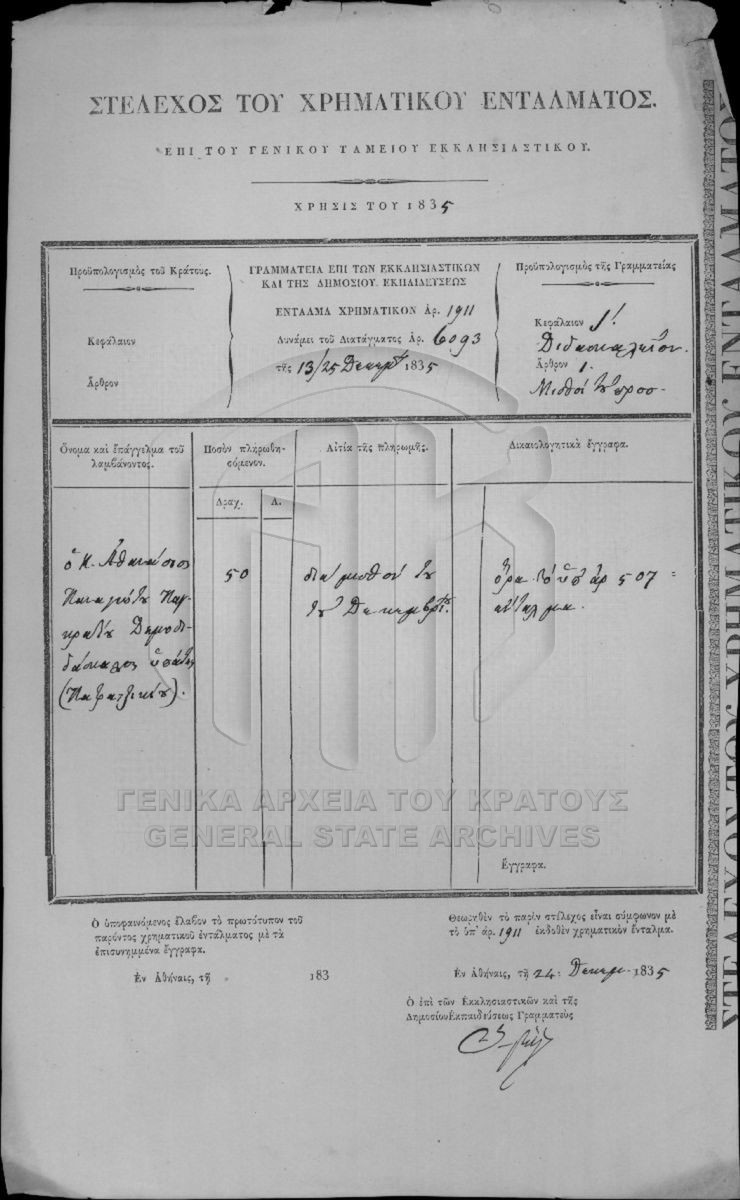 ΣΤΕΛΕΧΟΣ ΤΟΥ ΧΡΗΜΑΤΙΚΟΥ ΕΝΤΑΛΜΑΤΟΣ.
ΕΠΙ ΤΟΥ ΓΕΝΙΚΟΥ ΤΑΜΕΙΟΥ ΕΚΚΛΗΣΙΑΣΤΙΚΟΥ.
ΧΡΗΣΙΣ ΤΟΥ 1835
Προϋπολογισμὸς τοῦ Κράτους.
Κεφάλαιον
Ἄρθρον
ΓΡΑΜΜΑΤΕΙΑ ΕΠΙ ΤΩΝ ΕΚΚΛΗΣΙΑΣΤΙΚΩΝ
ΚΑΙ ΤΗΣ ΔΗΜΟΣΙΟΥ. ΕΚΠΑΙΔΕΥΣΕΩΣ
ΕΝΤΑΛΜΑ ΧΡΗΜΑΤΙΚΟΝ Ἀρ. 1911
Δυνάμει τοῦ Διατάγματος Ἀρ. 6093
τῆς 13/25 Δεκεμβ 1835
Προϋπολογισμὸς τῆς Γραμματείας
Κεφάλαιον 1!
Διδασκαλεῖον.
Ἄρθρον 1.
Μισθοὶ
Ὄνομα καὶ ἐπάγγελμα τοῦ
λαμβάνοντος.
Ποσὸν πληρωθη-
σόμενον.
Δραχ. Λ.
Αἰτία τῆς πληρωμῆς.
Δικαιολογητικὰ ἔγγραφα.
ὁ Κ. Ἀθανάσιος
Παναγιώτου
Δημοδι-
δάσκαλος
(Πατρατζικίου).
50
διὰ μισθόν του
τοῦ Δεκεμβρίου.
ὅρα τὸ ὑπ' ἀρ 507
ἔνταλμα.
Ἔγγραφα.
Ὁ ὑποφαινόμενος ἔλαβον τὸ πρωτότυπον τοῦ
παρόντος χρηματικοῦ ἐντάλματος μὲ τὰ
ἐπισυνημμένα ἔγγραφα.
Ἐν Ἀθήναις, τῇ 183
Θεωρηθὲν τὸ παρὸν στέλεχος εἶναι σύμφωνον μὲ
τὸ ὑπ' ἀρ. 1911 ἐκδοθὲν χρηματικὸν ἔνταλμα.
Ἐν Ἀθήναις, τῇ 24 Δεκεμ. 1835
Ὁ ἐπὶ τῶν Ἐκκλησιαστικῶν καὶ τῆς
Δημοσίου Ἐκπαιδεύσεως Γραμματεὺς
ΓΕΝΙΚΑ ΑΡΧΕΙΑ ΤΟΥ ΚΡΑΤΟΥΣ
GENERAL STATE ARCHIVES
ΣΤΕΛΕΧΟΣ ΤΟΥ ΧΡΗΜΑΤΙΚΟΥ ΕΝΤΑΛΜΑΤΟΣ